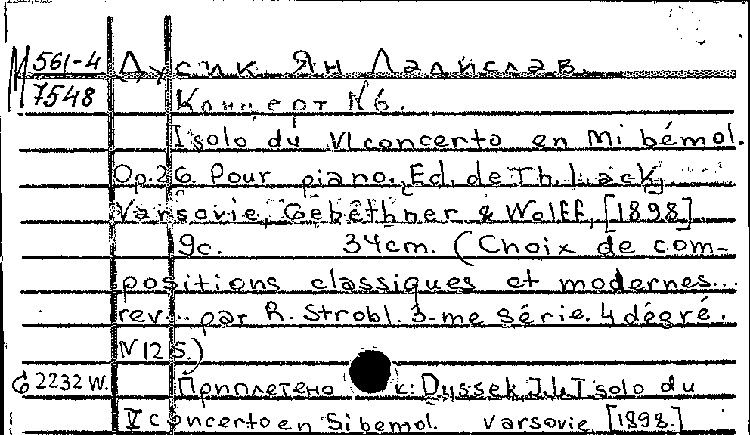 М 561-4 Дусик Ян Ладислав.
7548 Концерт N6.
I solo du VI concerto en Mi bémol.
Op. 26. Pour piano. Ed. de Th. Lack.
Varsovie, Gebethner & Wolff, [1898]
9c. 34cm. (Choix de com-
positions classiques et modernes...
rev... par R. Strobl. 3-me série. 4 dégré.
N 125.)
G 2232 W. Приплетено к: Dussek J.L. I solo du
V concerto en Si bemol. Varsovie [1898.]